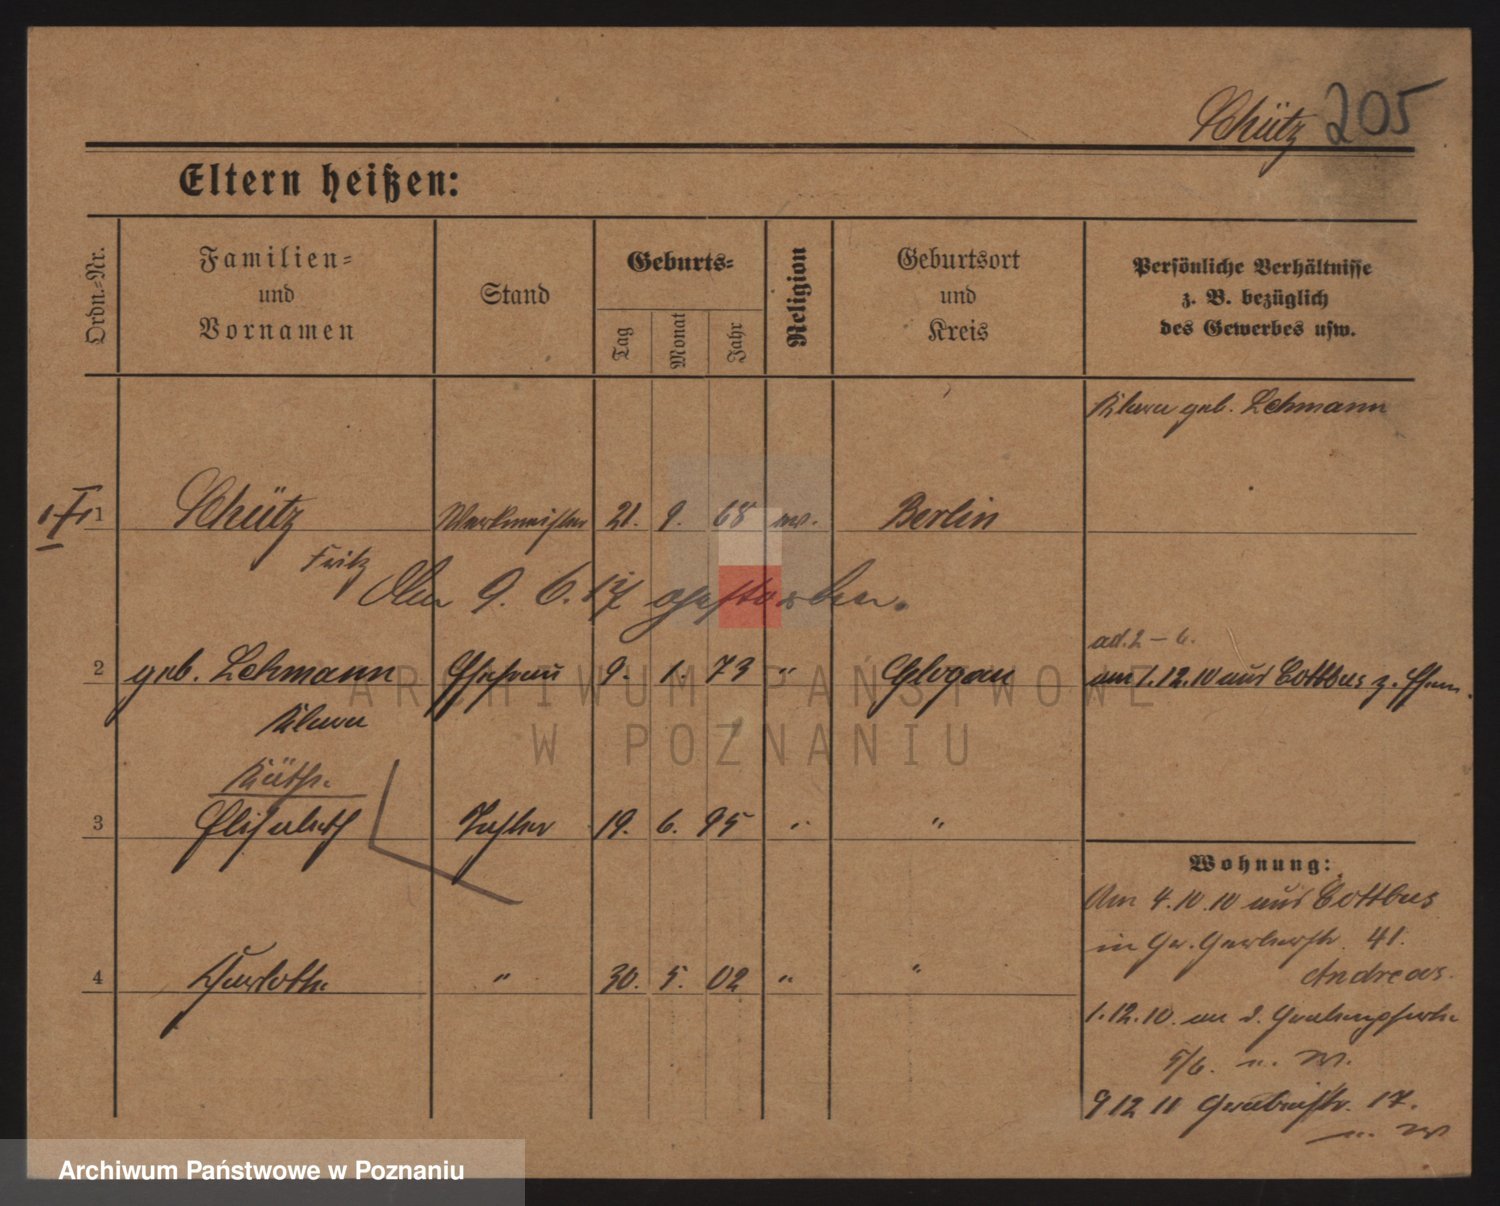 Schütz 205
Eltern heißen:
Ordn.-Nr.
Familien-
und
Vornamen
Stand
Geburts-
Tag
Monat
Jahr
Religion
Geburtsort
und
Kreis
Persönliche Verhältnisse
z. B. bezüglich
des Gewerbes usw.
Klara geb. Lehmann
1 Schütz Werkmeister 21. 9. 68 ev. Berlin
Fritz
Am 9. 6. 17 gestorben.
ad. 2 - 6.
2 geb. Lehmann Ehefrau 9. 1. 73 " Glogau am 1.12.10 aus Cottbus z. Ehem.
Klara
Käthe
3 Elisabeth Tochter 19. 6. 95 " "
Wohnung:
Am 4.10.10 aus Cottbus
in Gr. Gerberstr. 41.
Andreas.
4 Charlotte " 30. 5. 02 " "
1.12.10. an d.
5/6.
9 12 11 17.
ARCHIWUM PAŃSTWOWE
W POZNANIU
Archiwum Państwowe w Poznaniu